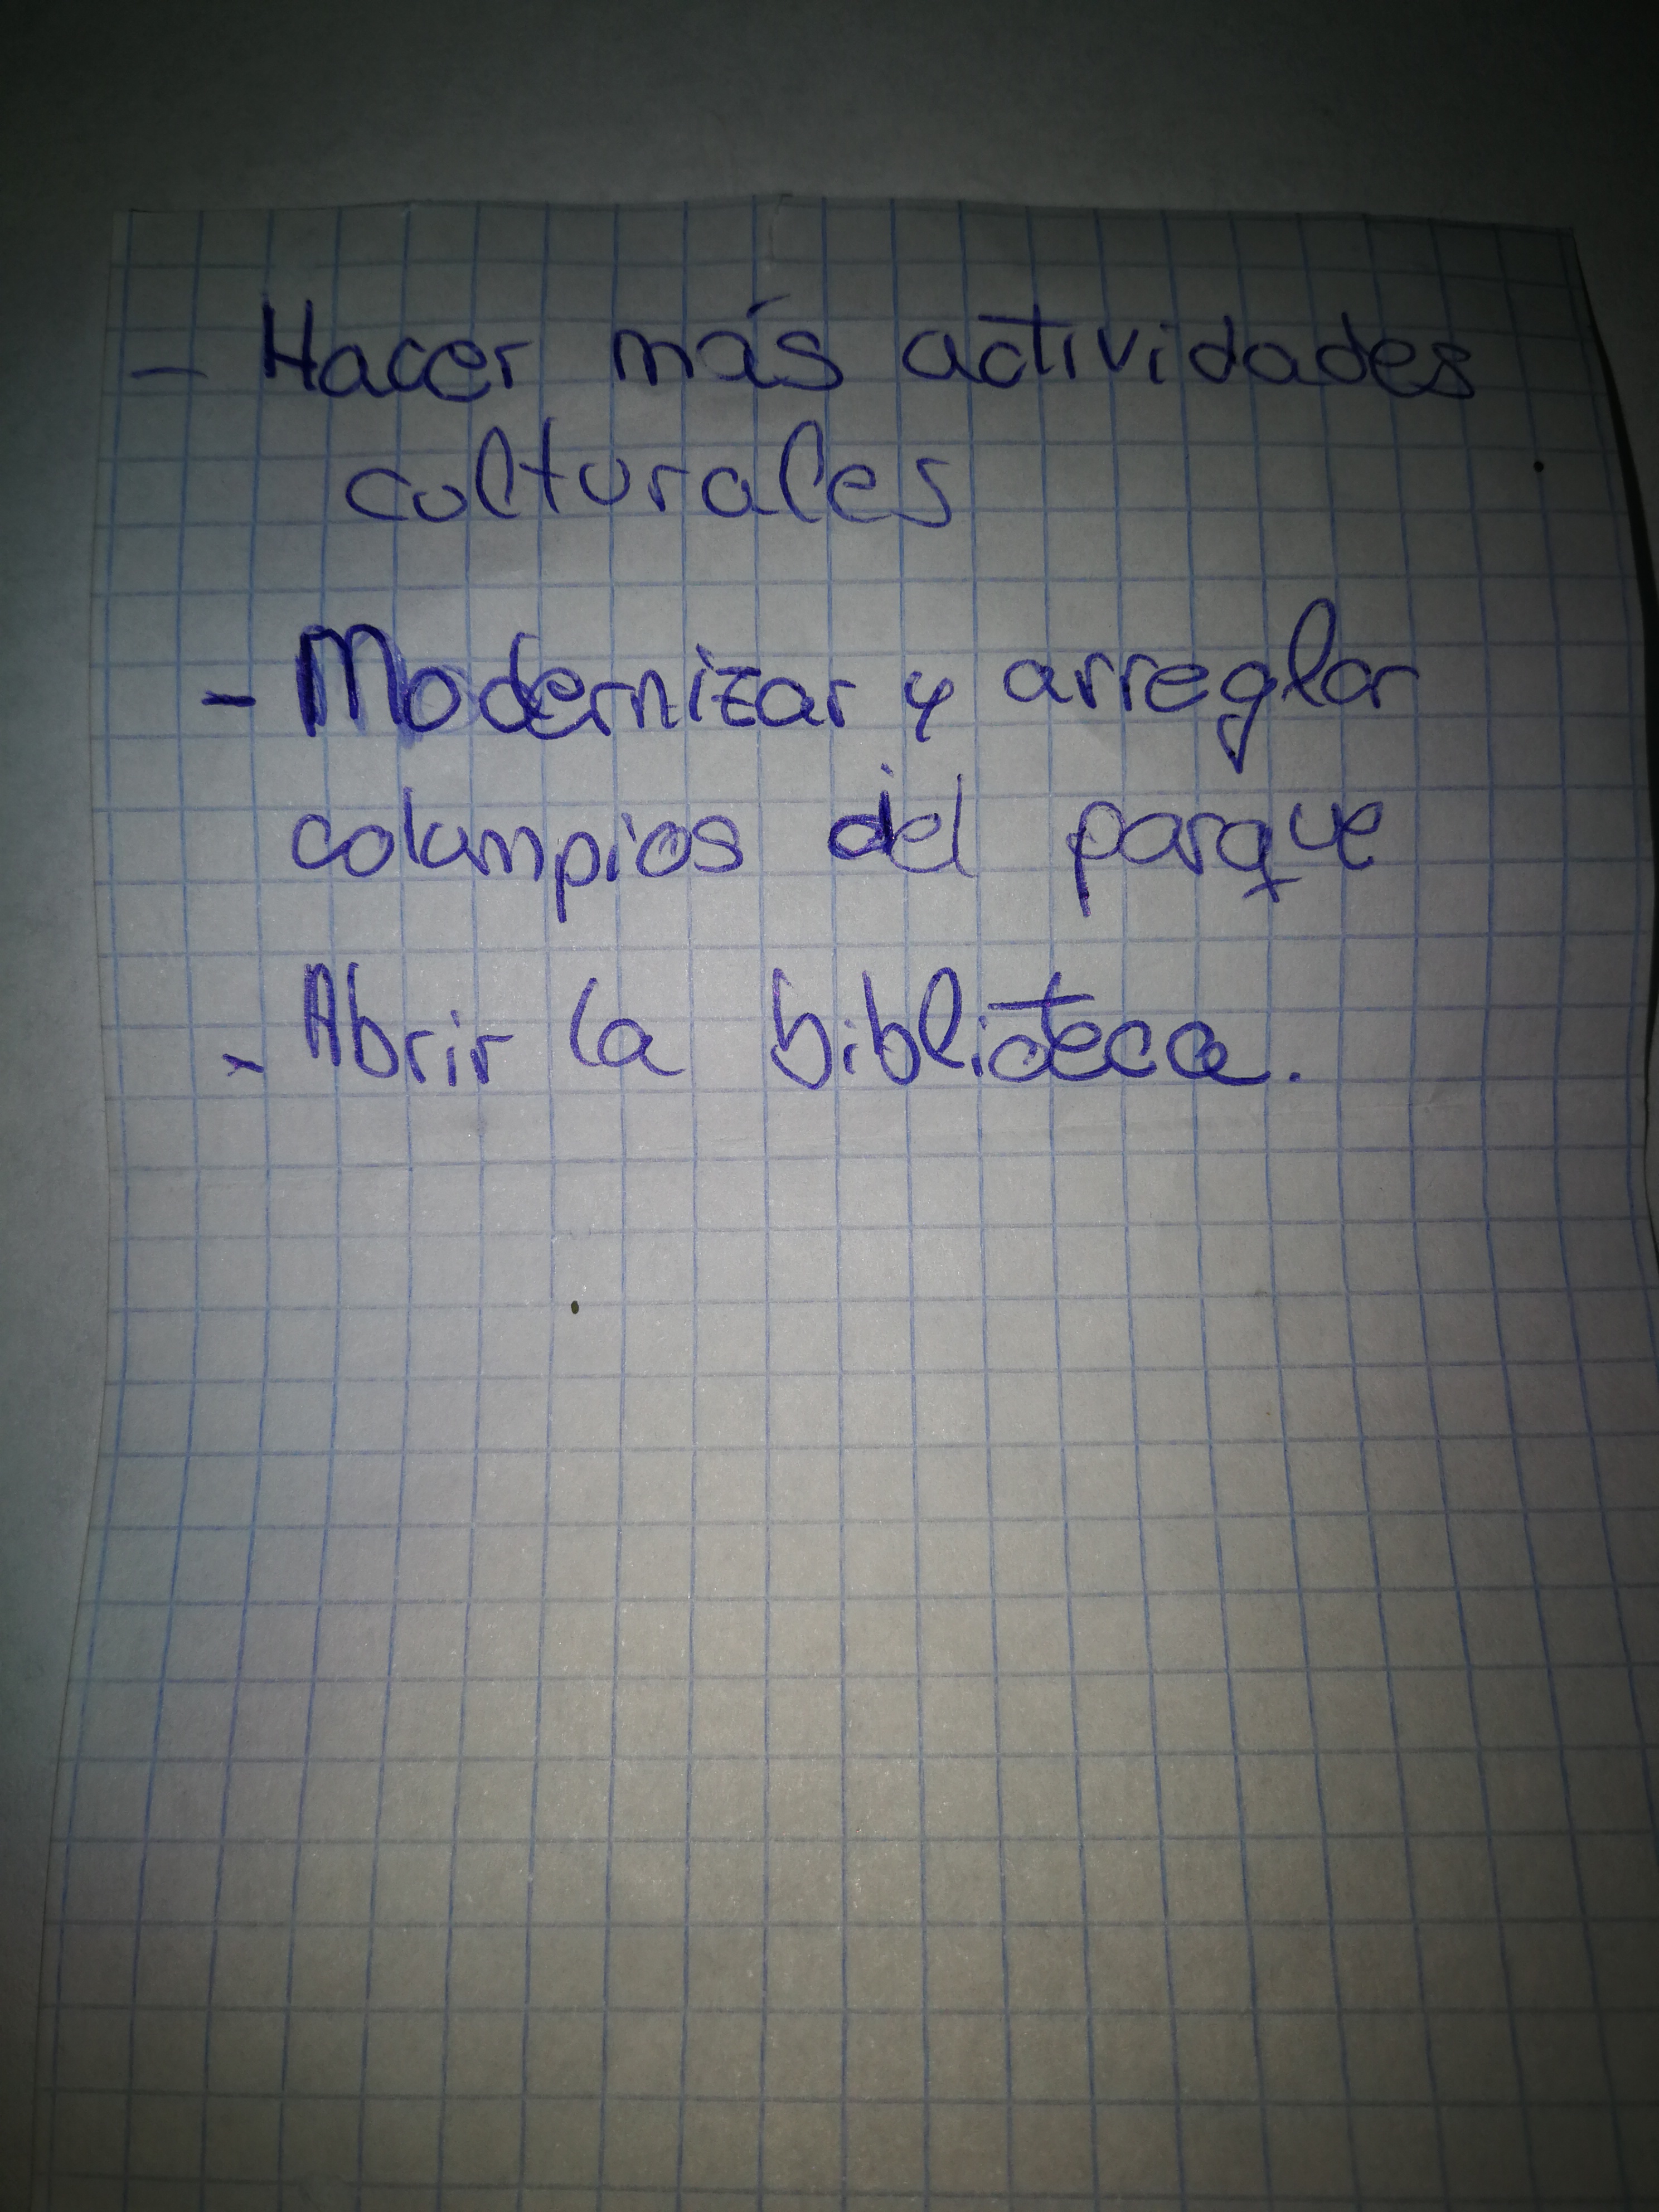 - Hacer más actividades
culturales
- Modernizar y arreglar
columpios del parque
- Abrir la biblioteca.